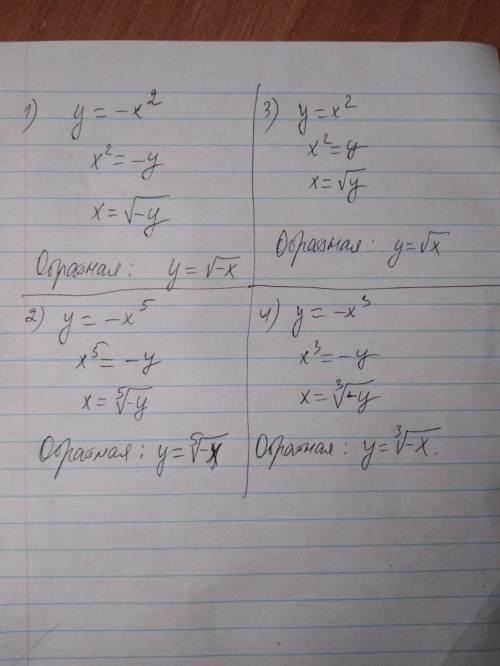 1) y = -x²
x² = -y
x = √-y
Обратная: y = √-x
2) y = -x⁵
x⁵ = -y
x = ⁵√-y
Обратная: y = ⁵√-x
3) y = x²
x² = y
x = √y
Обратная: y = √x
4) y = -x³
x³ = -y
x = ³√-y
Обратная: y = ³√-x.